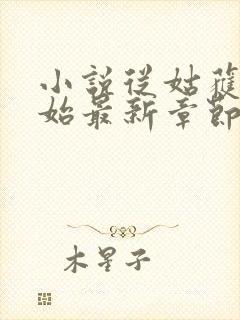 小說從姑獲
始最新章節
木星子